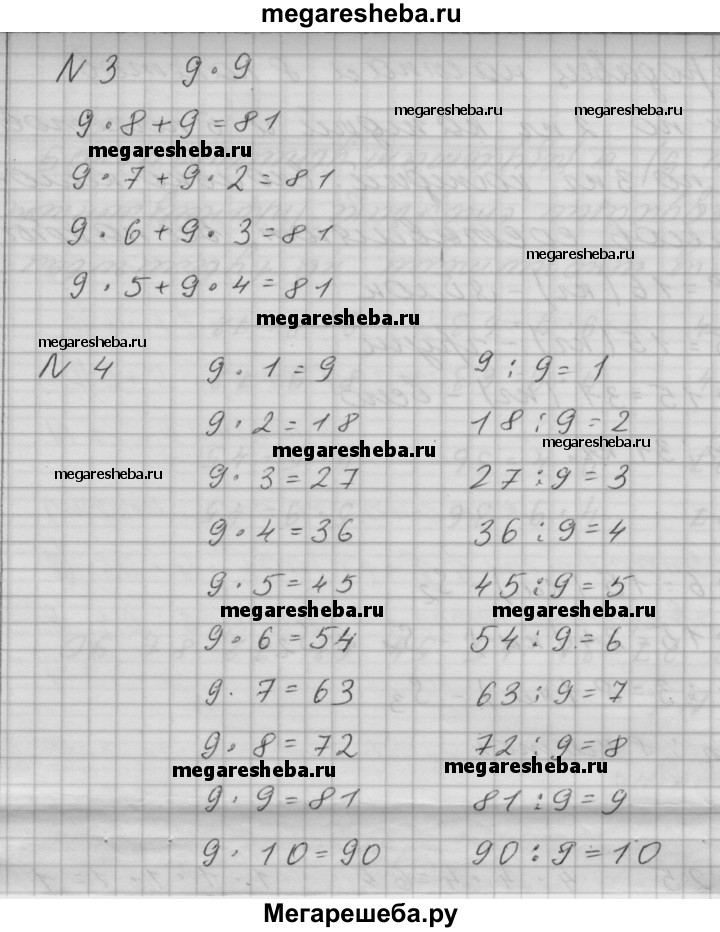 megaresheba.ru
N 3 9 · 9
megaresheba.ru megaresheba.ru
9 · 8 + 9 = 81
megaresheba.ru
9 · 7 + 9 · 2 = 81
9 · 6 + 9 · 3 = 81
megaresheba.ru
9 · 5 + 9 · 4 = 81
megaresheba.ru
megaresheba.ru
N 4 9 · 1 = 9 9 : 9 = 1
9 · 2 = 18 18 : 9 = 2
megaresheba.ru megaresheba.ru
megaresheba.ru 9 · 3 = 27 27 : 9 = 3
9 · 4 = 36 36 : 9 = 4
9 · 5 = 45 45 : 9 = 5
megaresheba.ru megaresheba.ru
9 · 6 = 54 54 : 9 = 6
9 · 7 = 63 63 : 9 = 7
9 · 8 = 72 72 : 9 = 8
megaresheba.ru megaresheba.ru
9 · 9 = 81 81 : 9 = 9
9 · 10 = 90 90 : 9 = 10
Мегарешеба.ру